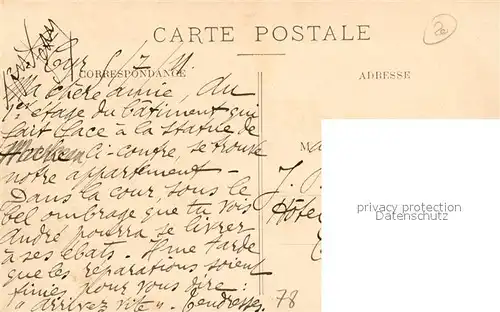 CARTE POSTALE
CORRESPONDANCE
ADRESSE
Ma chère amie, du
1er étage du bâtiment qui
fait face à la statue de
ci-contre, se trouve
notre appartement -
Dans la cour, sous le
bel ombrage que tu vois
André pourra se livrer
à ses ébats. Il me tarde
que les réparations soient
finies pour vous dire :
"arrivez vite". Tendresses.
M
J.
Hôte
privacy protection
Datenschutz
78